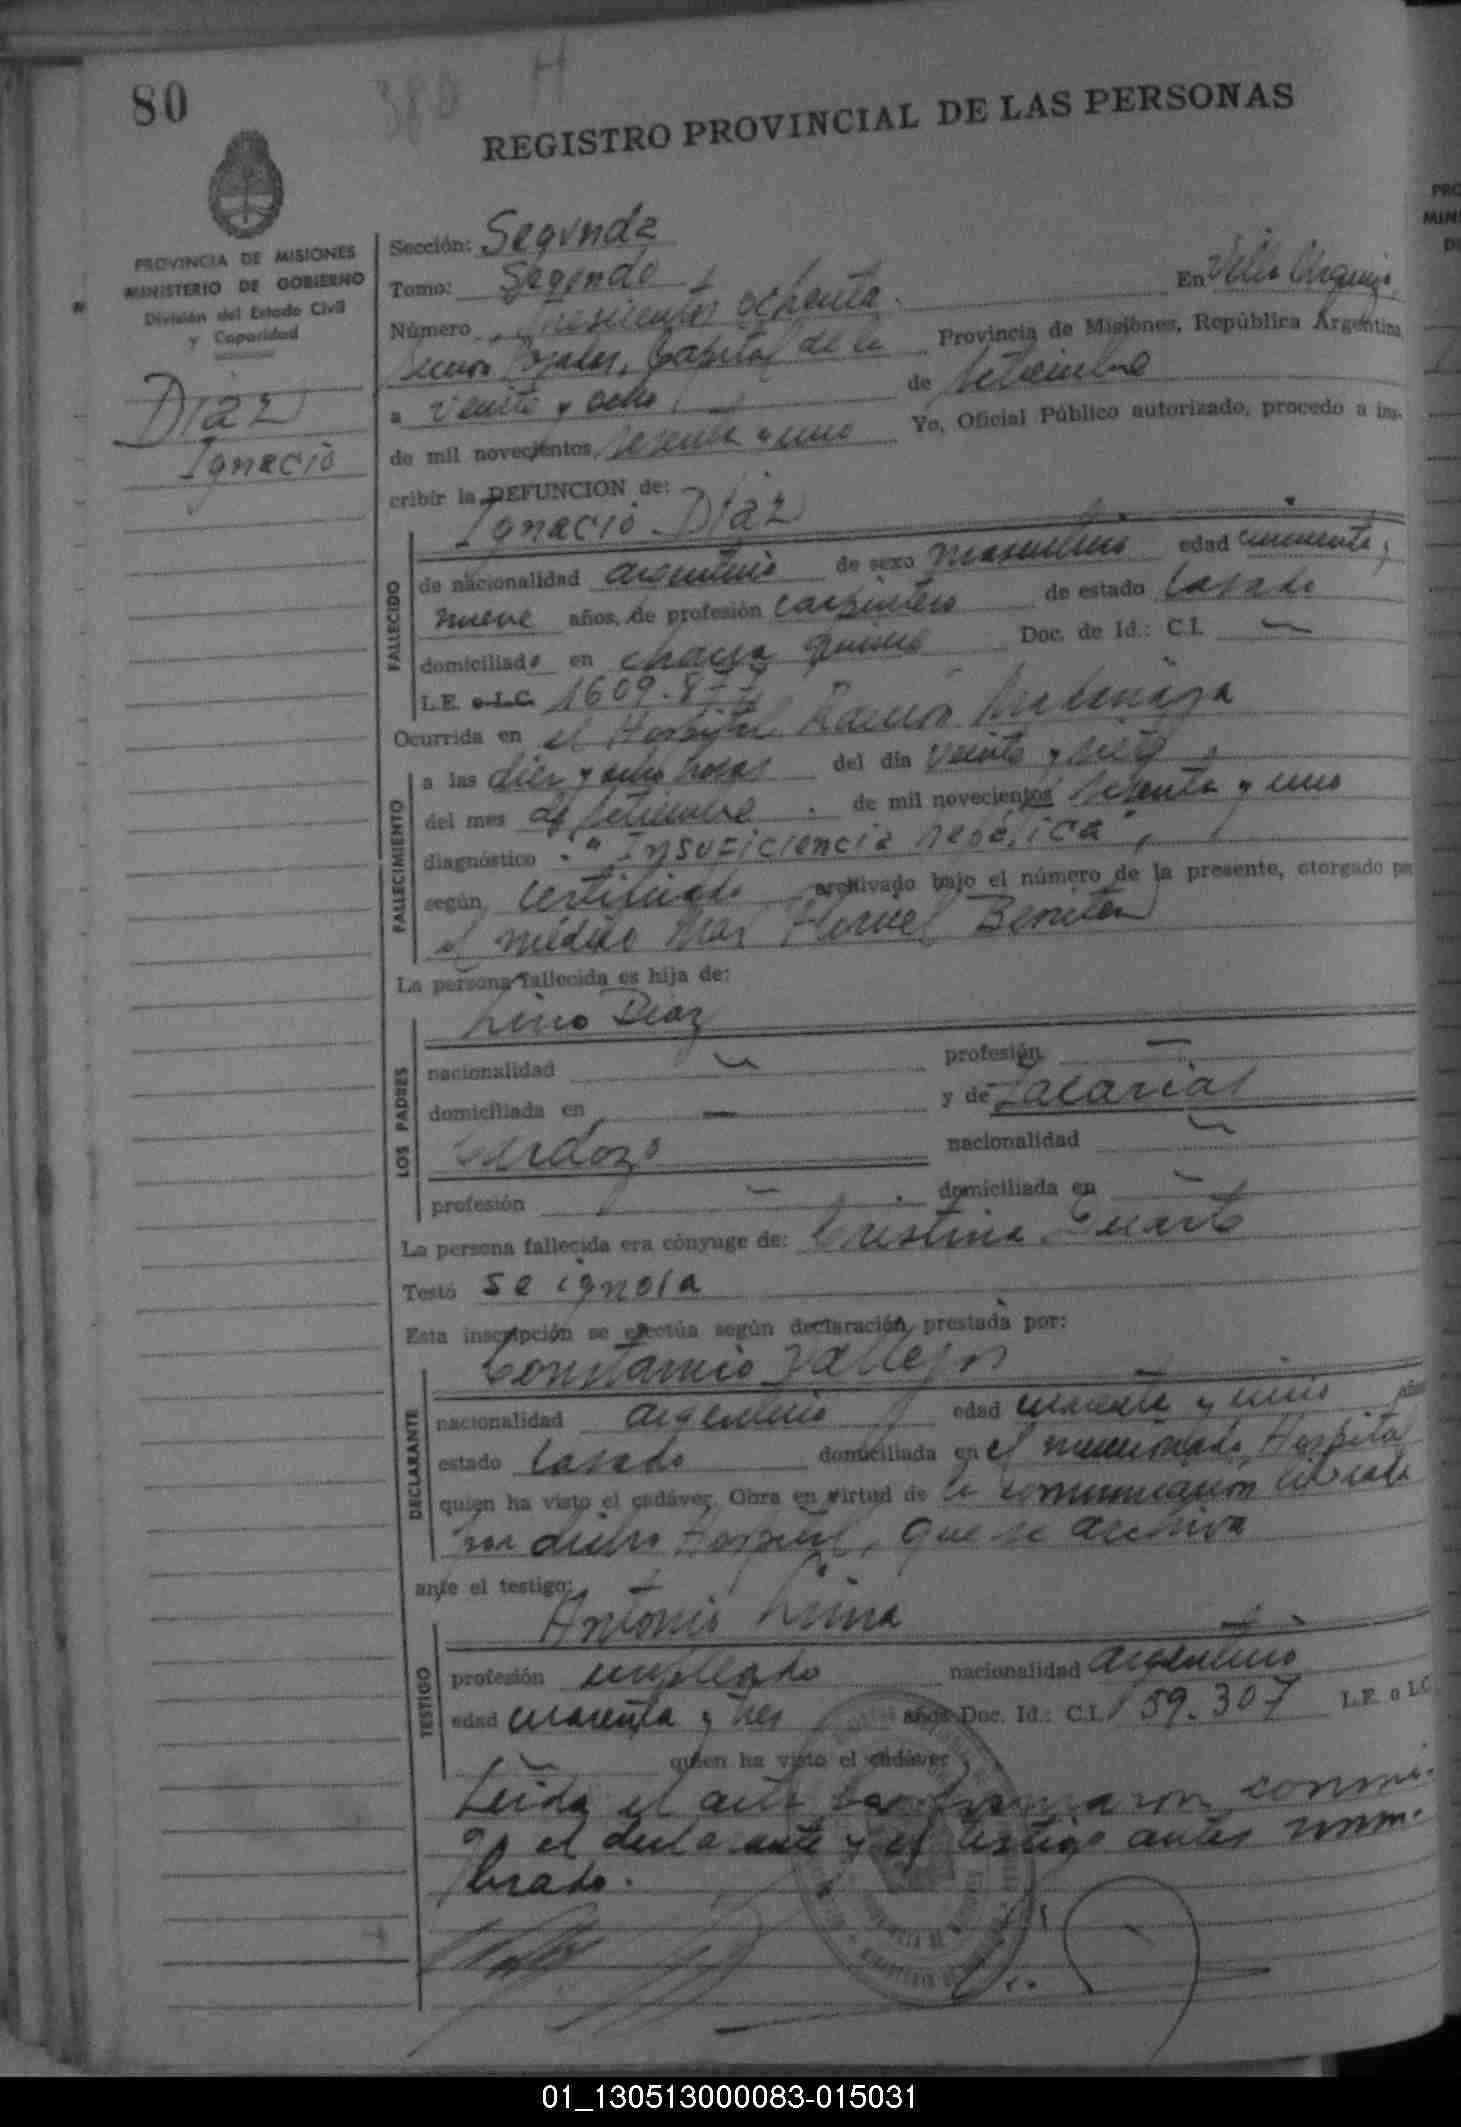 80
380 H
REGISTRO PROVINCIAL DE LAS PERSONAS
PROVINCIA DE MISIONES
MINISTERIO DE GOBIERNO
División del Estado Civil
y Capacidad
Diaz
Ignacio
Sección: Segunda
Tomo: Segundo
Número trescientos ochenta. En Villa Urquiza,
Posadas, Capital de la Provincia de Misiones, República Argentina
a veinte y ocho de setiembre
de mil novecientos sesenta y uno Yo, Oficial Público autorizado, procedo a ins-
cribir la DEFUNCION de:
Ignacio Diaz
FALLECIDO
de nacionalidad argentino de sexo masculino edad cincuenta y
nueve años, de profesión carpintero de estado casado
domiciliado en chacra quince Doc. de Id.: C.I. —
L.E. o L.C. 1609.877
Ocurrida en el Hospital Ramón Madariaga
FALLECIMIENTO
a las diez y ocho horas del día veinte y siete
del mes de setiembre de mil novecientos sesenta y uno
diagnóstico: "Insuficiencia hepática",
según certificado archivado bajo el número de la presente, otorgado por
el médico Benitez
La persona fallecida es hija de:
Lino Diaz
LOS PADRES
nacionalidad — profesión —
domiciliada en — y de Zacarias
Cardozo nacionalidad —
profesión — domiciliada en —
La persona fallecida era cónyuge de: Cristina Duarte
Testó se ignora
Esta inscripción se efectúa según declaración prestada por:
Constancio Vallejos
DECLARANTE
nacionalidad argentino edad cuarenta y años
estado casado domiciliada en el mencionado Hospital
quien ha visto el cadáver. Obra en virtud de la comunicación librada
por dicho Hospital, que se archiva
ante el testigo:
Antonio Lima
TESTIGO
profesión empleado nacionalidad argentino
edad cuarenta y tres años Doc. Id.: C.I. 159.307 L.E. o L.C.
— quien ha visto el cadáver
Leida el acta la firmaron conmi-
go el declarante y el testigo antes nom-
brado.
01_130513000083-015031